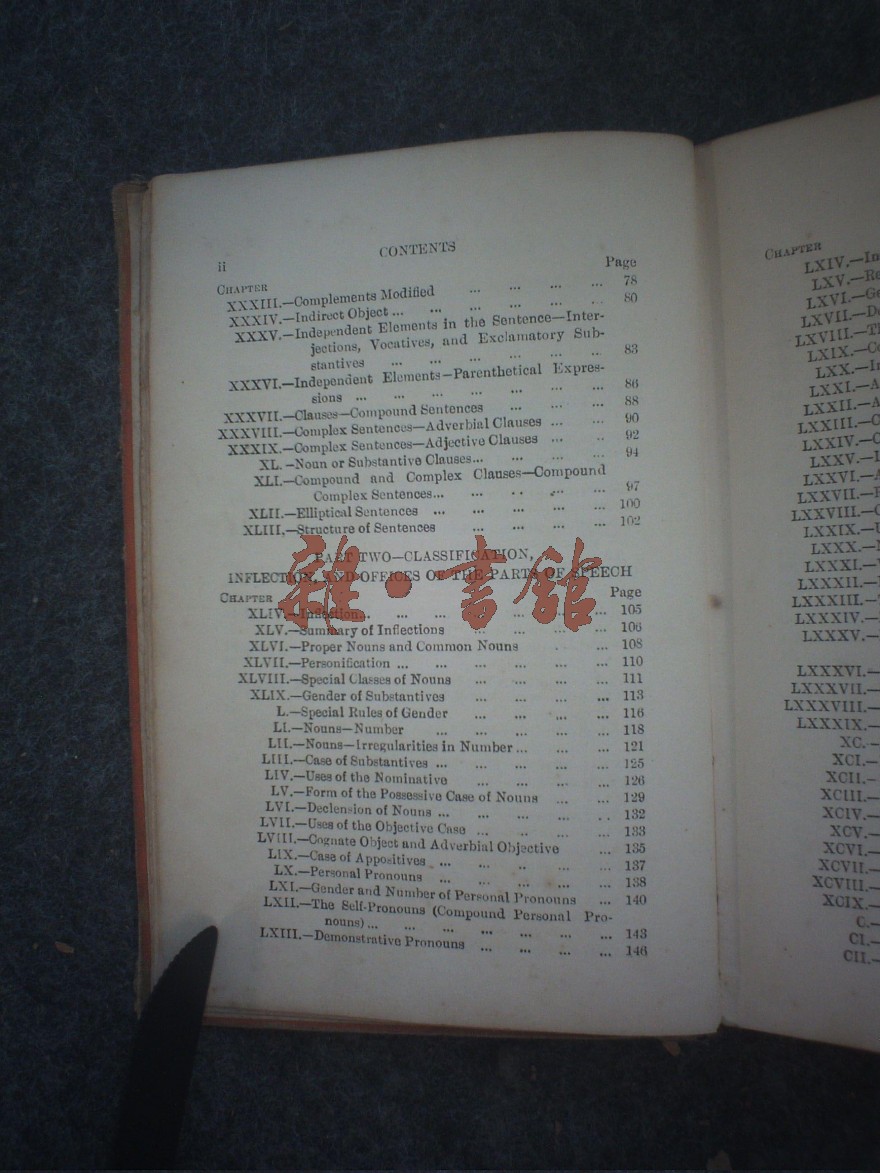 CONTENTS
ii
CHAPTER Page
XXXIII.—Complements Modified ... ... ... ... 78
XXXIV.—Indirect Object ... ... ... ... ... 80
XXXV.—Independent Elements in the Sentence—Inter-
jections, Vocatives, and Exclamatory Sub-
stantives ... ... ... ... ... ... 83
XXXVI.—Independent Elements—Parenthetical Expres-
sions ... ... ... ... ... ... ... 86
XXXVII.—Clauses—Compound Sentences ... ... ... 88
XXXVIII.—Complex Sentences—Adverbial Clauses ... ... 90
XXXIX.—Complex Sentences—Adjective Clauses ... .. 92
XL.—Noun or Substantive Clauses ... ... ... ... 94
XLI.—Compound and Complex Clauses—Compound
Complex Sentences ... ... .. ... ... 97
XLII.—Elliptical Sentences ... ... ... ... ... 100
XLIII.—Structure of Sentences ... ... ... ... 102
PART TWO—CLASSIFICATION,
INFLECTION, AND OFFICES OF THE PARTS OF SPEECH
CHAPTER Page
XLIV.—Inflection ... ... ... ... ... ... ... 105
XLV.—Summary of Inflections ... ... ... ... 106
XLVI.—Proper Nouns and Common Nouns ... 108
XLVII.—Personification ... ... ... ... ... ... 110
XLVIII.—Special Classes of Nouns ... ... ... ... 111
XLIX.—Gender of Substantives ... ... ... ... 113
L.—Special Rules of Gender ... ... ... ... 116
LI.—Nouns—Number ... ... ... ... ... 118
LII.—Nouns—Irregularities in Number ... ... ... 121
LIII.—Case of Substantives ... ... ... ... ... 125
LIV.—Uses of the Nominative ... ... ... ... 126
LV.—Form of the Possessive Case of Nouns ... ... 129
LVI.—Declension of Nouns ... ... ... ... .. 132
LVII.—Uses of the Objective Case ... .. ... ... 133
LVIII.—Cognate Object and Adverbial Objective ... 135
LIX.—Case of Appositives ... ... .. ... ... 137
LX.—Personal Pronouns ... ... ... ... ... 138
LXI.—Gender and Number of Personal Pronouns ... 140
LXII.—The Self-Pronouns (Compound Personal Pro-
nouns) ... ... ... ... ... ... ... 143
LXIII.—Demonstrative Pronouns ... ... ... ... 146
雜·書館
CHAPTER
LXIV.—In
LXV.—Re
LXVI.—Ge
LXVII.—De
LXVIII.—Th
LXIX.—Co
LXX.—In
LXXI.—A
LXXII.—A
LXXIII.—C
LXXIV.—C
LXXV.—I
LXXVI.—A
LXXVII.—
LXXVIII.—C
LXXIX.—U
LXXX.—
LXXXI.—
LXXXII.—
LXXXIII.—
LXXXIV.—
LXXXV.—
LXXXVI.—
LXXXVII.—
LXXXVIII.—
LXXXIX.—
XC.—
XCI.—
XCII.—
XCIII.—
XCIV.—
XCV.—
XCVI.—
XCVII.—
XCVIII.—
XCIX.—
C.—
CI.—
CII.—